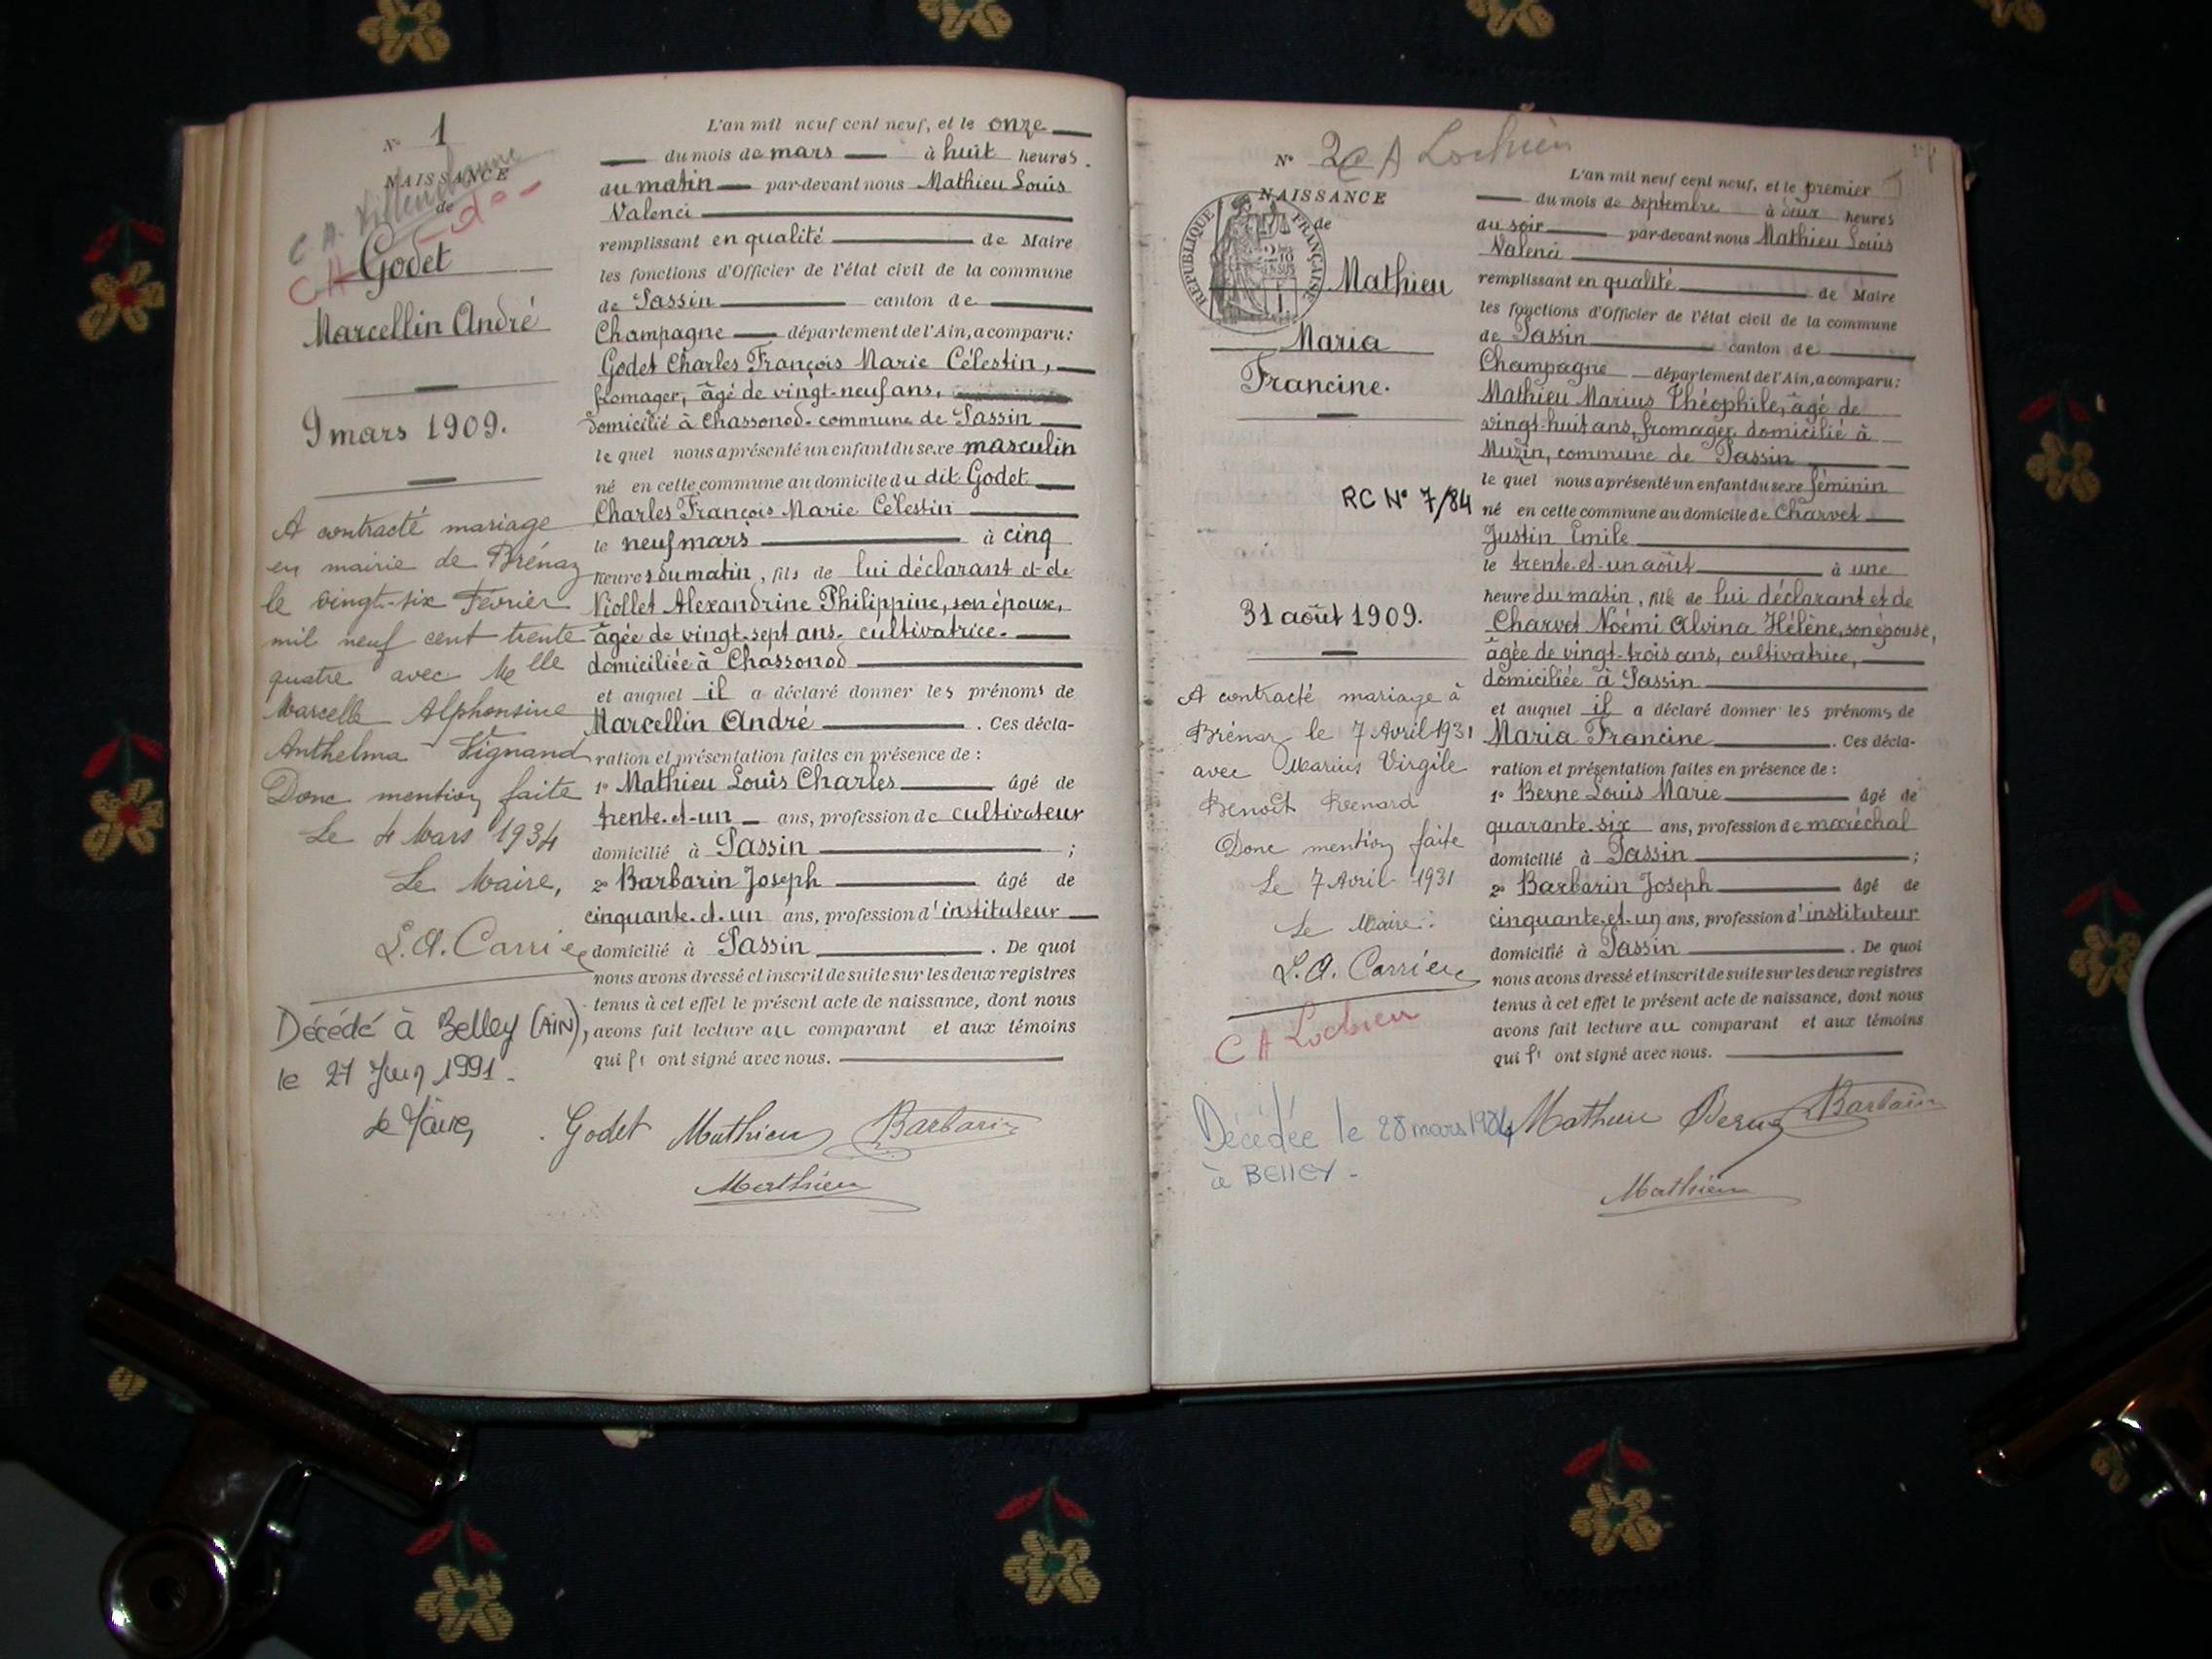 N° 1
NAISSANCE
de
C. A. Villeurbanne
C A
Godet
Marcellin André
9 mars 1909.
A contracté mariage
en mairie de Brénaz
le vingt-six Février
mil neuf cent trente
quatre avec Melle
Marcelle Alphonsine
Anthelma Vignand
Donc mention faite
Le 4 Mars 1934
Le Maire,
L. A. Carrier
Décédé à Belley (AIN),
le 27 Juin 1991.
Le Maire,
L'an mil neuf cent neuf, et le onze
du mois de mars à huit heures.
du matin par-devant nous Mathieu Louis
Valenci
remplissant en qualité de Maire
les fonctions d'Officier de l'état civil de la commune
de Passin canton de
Champagne département de l'Ain, a comparu :
Godet Charles François Marie Célestin,
fromager, âgé de vingt-neuf ans,
domicilié à Chassonod. commune de Passin
lequel nous a présenté un enfant du sexe masculin
né en cette commune au domicile du dit Godet
Charles François Marie Célestin
le neuf mars à cinq
heures du matin, fils de lui déclarant et de
Niollet Alexandrine Philippine, son épouse,
âgée de vingt-sept ans. cultivatrice.
domiciliée à Chassonod
et auquel il a déclaré donner les prénoms de
Marcellin André. Ces décla-
ration et présentation faites en présence de :
1° Mathieu Louis Charles âgé de
trente-et-un ans, profession de cultivateur
domicilié à Passin ;
2° Barbarin Joseph âgé de
cinquante-et-un ans, profession d'instituteur
domicilié à Passin. De quoi
nous avons dressé et inscrit de suite sur les deux registres
tenus à cet effet le présent acte de naissance, dont nous
avons fait lecture au comparant et aux témoins
qui ont signé avec nous.
Godet Mathieu Barbarin
Mathieu
N° 2 C A Lochieu
NAISSANCE
de
REPUBLIQUE FRANÇAISE
Mathieu
Maria
Francine.
RC N° 7/84
31 août 1909.
A contracté mariage à
Brénaz le 7 Avril 1931
avec Marius Virgile
Benoît Renard
Donc mention faite
Le 7 Avril 1931
Le Maire :
L. A. Carrier
C A Lochieu
Décédée le 28 mars 1984
à BElleY -
L'an mil neuf cent neuf, et le premier
du mois de septembre à deux heures
du soir par-devant nous Mathieu Louis
Valenci
remplissant en qualité de Maire
les fonctions d'Officier de l'état civil de la commune
de Passin canton de
Champagne département de l'Ain, a comparu :
Mathieu Marius Théophile, âgé de
vingt-huit ans, fromager domicilié à
Muzin, commune de Passin
lequel nous a présenté un enfant du sexe féminin
né en cette commune au domicile de Charvet
Justin Emile
le trente-et-un août à une
heure du matin, fille de lui déclarant et de
Charvet Noémi Alvina Hélène, son épouse,
âgée de vingt-trois ans, cultivatrice,
domiciliée à Passin
et auquel il a déclaré donner les prénoms de
Maria Francine. Ces décla-
ration et présentation faites en présence de :
1° Berne Louis Marie âgé de
quarante-six ans, profession de maréchal
domicilié à Passin ;
2° Barbarin Joseph âgé de
cinquante-et-un ans, profession d'instituteur
domicilié à Passin. De quoi
nous avons dressé et inscrit de suite sur les deux registres
tenus à cet effet le présent acte de naissance, dont nous
avons fait lecture au comparant et aux témoins
qui ont signé avec nous.
Mathieu Berne Barbarin
Mathieu